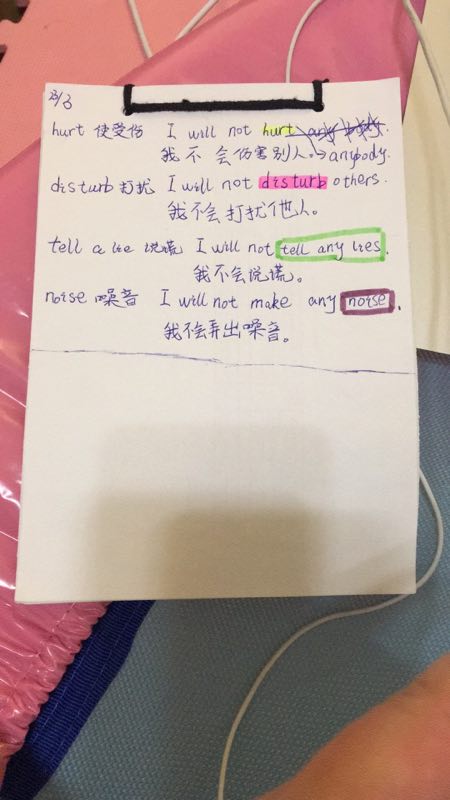 23/3
hurt 使受伤 I will not hurt any body.
我不会伤害别人。→anybody.
disturb 打扰 I will not disturb others.
我不会打扰他人。
tell a lie 说谎 I will not tell any lies.
我不会说谎。
noise 噪音 I will not make any noise.
我不会弄出噪音。